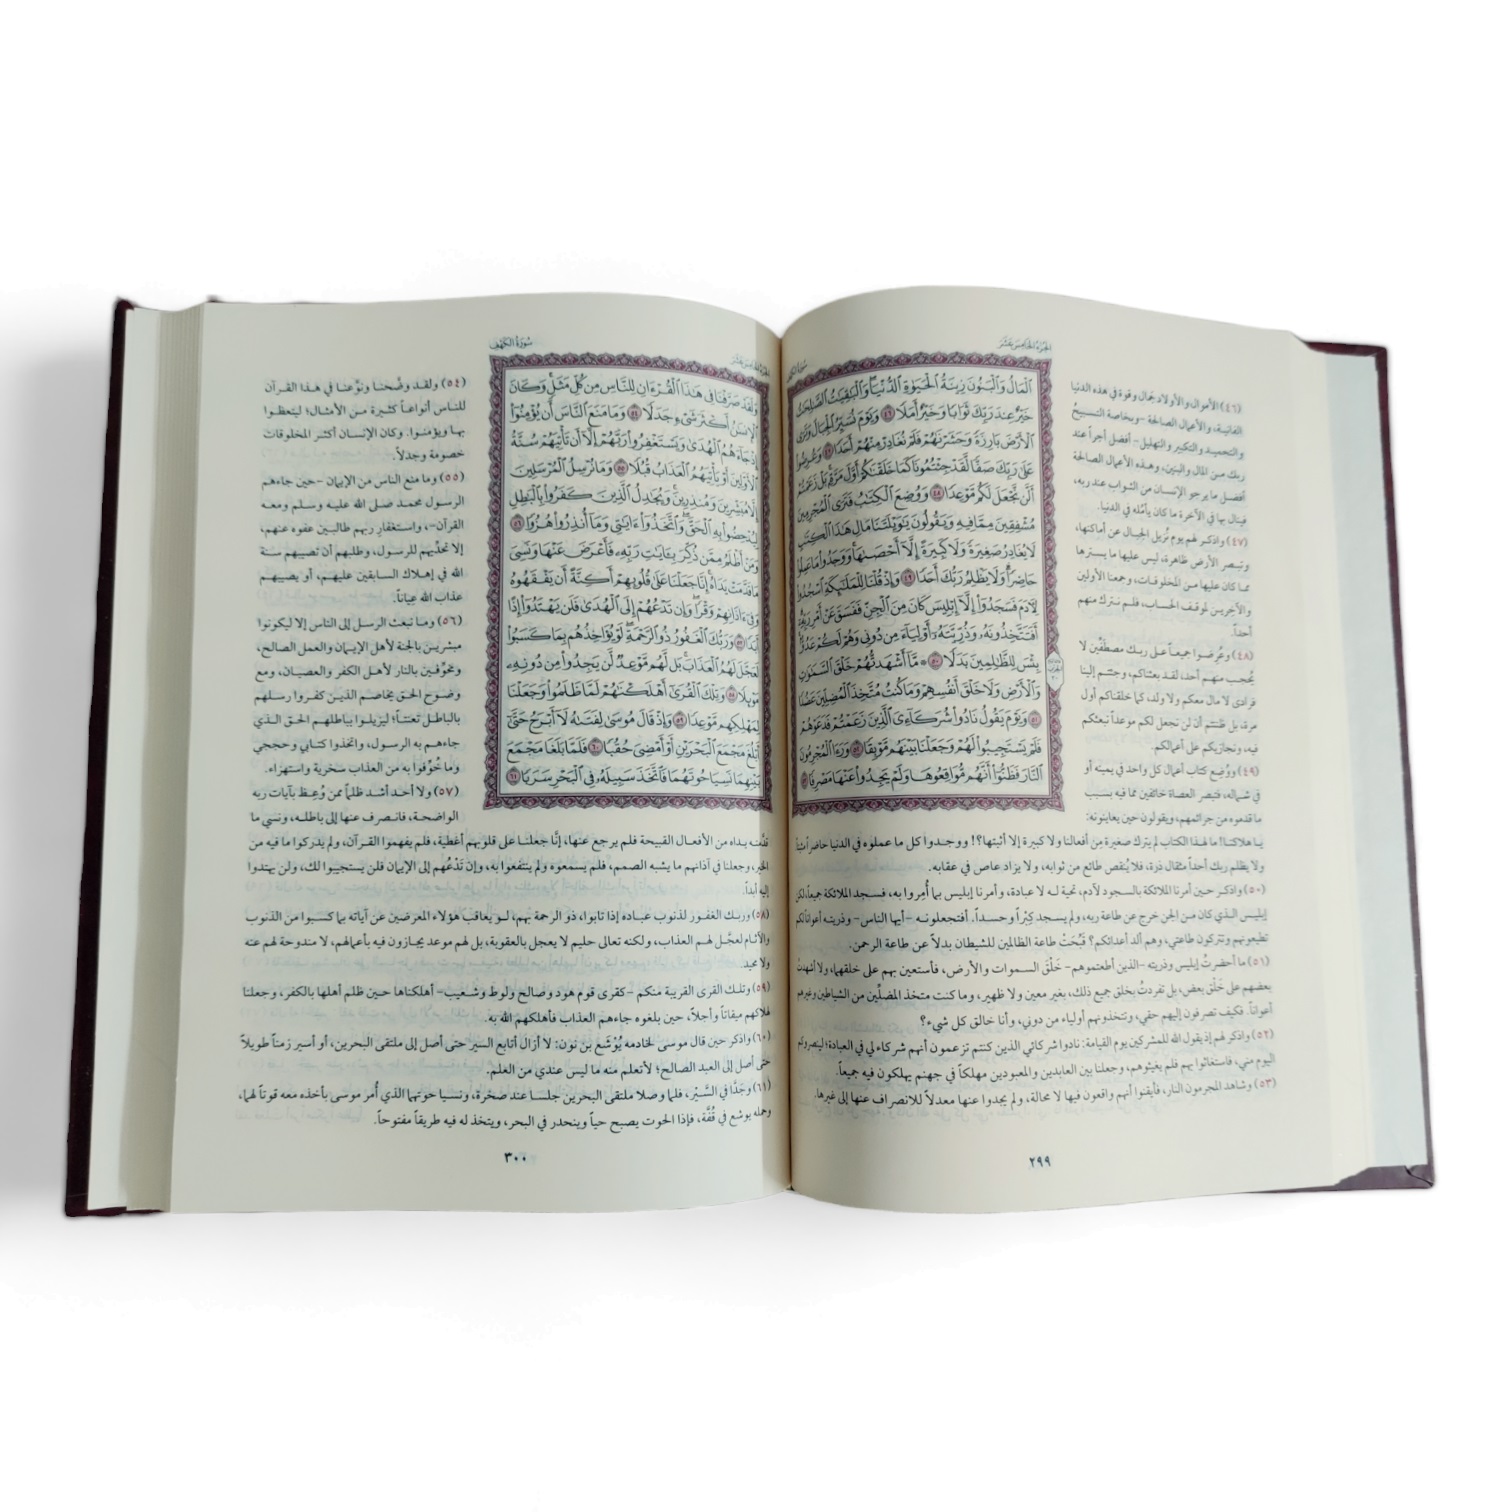 الجزء الخامس عشر
سورة الكهف
ٱلْمَالُ وَٱلْبَنُونَ زِينَةُ ٱلْحَيَوٰةِ ٱلدُّنْيَا وَٱلْبَٰقِيَٰتُ ٱلصَّٰلِحَٰتُ
خَيْرٌ عِندَ رَبِّكَ ثَوَابًا وَخَيْرٌ أَمَلًا ٤٦ وَيَوْمَ نُسَيِّرُ ٱلْجِبَالَ وَتَرَى
ٱلْأَرْضَ بَارِزَةً وَحَشَرْنَٰهُمْ فَلَمْ نُغَادِرْ مِنْهُمْ أَحَدًا ٤٧ وَعُرِضُوا۟
عَلَىٰ رَبِّكَ صَفًّا لَّقَدْ جِئْتُمُونَا كَمَا خَلَقْنَٰكُمْ أَوَّلَ مَرَّةٍۭ بَلْ زَعَمْتُمْ
أَلَّن نَّجْعَلَ لَكُم مَّوْعِدًا ٤٨ وَوُضِعَ ٱلْكِتَٰبُ فَتَرَى ٱلْمُجْرِمِينَ
مُشْفِقِينَ مِمَّا فِيهِ وَيَقُولُونَ يَٰوَيْلَتَنَا مَالِ هَٰذَا ٱلْكِتَٰبِ
لَا يُغَادِرُ صَغِيرَةً وَلَا كَبِيرَةً إِلَّآ أَحْصَىٰهَا وَوَجَدُوا۟ مَا عَمِلُوا۟
حَاضِرًا وَلَا يَظْلِمُ رَبُّكَ أَحَدًا ٤٩ وَإِذْ قُلْنَا لِلْمَلَٰٓئِكَةِ ٱسْجُدُوا۟
لِءَادَمَ فَسَجَدُوٓا۟ إِلَّآ إِبْلِيسَ كَانَ مِنَ ٱلْجِنِّ فَفَسَقَ عَنْ أَمْرِ رَبِّهِۦٓ
أَفَتَتَّخِذُونَهُۥ وَذُرِّيَّتَهُۥٓ أَوْلِيَآءَ مِن دُونِى وَهُمْ لَكُمْ عَدُوٌّۢ
بِئْسَ لِلظَّٰلِمِينَ بَدَلًا ٥٠ ۞ مَّآ أَشْهَدتُّهُمْ خَلْقَ ٱلسَّمَٰوَٰتِ
وَٱلْأَرْضِ وَلَا خَلْقَ أَنفُسِهِمْ وَمَا كُنتُ مُتَّخِذَ ٱلْمُضِلِّينَ عَضُدًا
٥١ وَيَوْمَ يَقُولُ نَادُوا۟ شُرَكَآءِىَ ٱلَّذِينَ زَعَمْتُمْ فَدَعَوْهُمْ
فَلَمْ يَسْتَجِيبُوا۟ لَهُمْ وَجَعَلْنَا بَيْنَهُم مَّوْبِقًا ٥٢ وَرَءَا ٱلْمُجْرِمُونَ
ٱلنَّارَ فَظَنُّوٓا۟ أَنَّهُم مُّوَاقِعُوهَا وَلَمْ يَجِدُوا۟ عَنْهَا مَصْرِفًا ٥٣
(٤٦) الأموال والأولاد جَمال وقوة في هذه الدنيا
الفانية، والأعمال الصالحة -وبخاصة التسبيح
والتحميد والتكبير والتهليل- أفضل أجراً عند
ربك من المال والبنين، وهذه الأعمال الصالحة
أفضل ما يرجو الإنسان من الثواب عند ربه،
فينال بها في الآخرة ما كان يأمُله في الدنيا.
(٤٧) واذكر لهم يوم نُزيل الجبال عن أماكنها،
وتبصر الأرض ظاهرة، ليس عليها ما يسترها
مما كان عليها من المخلوقات، وجمعنا الأولين
والآخرين لموقف الحساب، فلم نترك منهم
أحداً.
(٤٨) وعُرضوا جميعاً على ربك مصطَفِّين لا
يُحجب منهم أحد، لقد بعثناكم، وجئتم إلينا
فرادى لا مال معكم ولا ولد، كما خلقناكم أول
مرة، بل ظننتم أن لن نجعل لكم موعداً نبعثكم
فيه، ونجازيكم على أعمالكم.
(٤٩) ووُضِع كتاب أعمال كل واحد في يمينه أو
في شماله، فتبصر العصاة خائفين مما فيه بسبب
ما قدموه من جرائمهم، ويقولون حين يعاينونه:
يا هلاكنا! ما لهذا الكتاب لم يترك صغيرة مِن أفعالنا ولا كبيرة إلا أثبتها؟! ووجدوا كل ما عملوه في الدنيا حاضراً مثبتاً
ولا يظلم ربك أحداً مثقال ذرة، فلا يُنقَص طائع من ثوابه، ولا يزاد عاص في عقابه.
(٥٠) واذكر حين أمرنا الملائكة بالسجود لآدم، تحية له لا عبادة، وأمرنا إبليس بما أُمِروا به، فسجد الملائكة جميعاً، لكن
إبليس الذي كان من الجن خرج عن طاعة ربه، ولم يسجد كِبْراً وحسداً. أفتجعلونه -أيها الناس- وذريته أعواناً لكم
تطيعونهم وتتركون طاعتي، وهم ألد أعدائكم؟ قَبُحَتْ طاعة الظالمين للشيطان بدلاً عن طاعة الرحمن.
(٥١) ما أحضرتُ إبليس وذريته -الذين أطعتموهم- خَلْقَ السموات والأرض، فأستعين بهم على خلقهما، ولا أشهدتُ
بعضهم على خَلْق بعض، بل تفردتُ بخلق جميع ذلك، بغير معين ولا ظهير، وما كنت متخذ المضلِّين من الشياطين وغيرهم
أعواناً. فكيف تصرفون إليهم حقي، وتتخذونهم أولياء من دوني، وأنا خالق كل شيء؟
(٥٢) واذكر لهم إذ يقول الله للمشركين يوم القيامة: نادوا شركائي الذين كنتم تزعمون أنهم شركاء لي في العبادة؛ لينصروكم
اليوم مني، فاستغاثوا بهم فلم يغيثوهم، وجعلنا بين العابدين والمعبودين مهلكاً في جهنم يهلكون فيه جميعاً.
(٥٣) وشاهد المجرمون النار، فأيقنوا أنهم واقعون فيها لا محالة، ولم يجدوا عنها معدلاً للانصراف عنها إلى غيرها.
٢٩٩
الجزء الخامس عشر
سورة الكهف
وَلَقَدْ صَرَّفْنَا فِى هَٰذَا ٱلْقُرْءَانِ لِلنَّاسِ مِن كُلِّ مَثَلٍ وَكَانَ
ٱلْإِنسَٰنُ أَكْثَرَ شَىْءٍ جَدَلًا ٥٤ وَمَا مَنَعَ ٱلنَّاسَ أَن يُؤْمِنُوٓا۟
إِذْ جَآءَهُمُ ٱلْهُدَىٰ وَيَسْتَغْفِرُوا۟ رَبَّهُمْ إِلَّآ أَن تَأْتِيَهُمْ سُنَّةُ
ٱلْأَوَّلِينَ أَوْ يَأْتِيَهُمُ ٱلْعَذَابُ قُبُلًا ٥٥ وَمَا نُرْسِلُ ٱلْمُرْسَلِينَ
إِلَّا مُبَشِّرِينَ وَمُنذِرِينَ وَيُجَٰدِلُ ٱلَّذِينَ كَفَرُوا۟ بِٱلْبَٰطِلِ
لِيُدْحِضُوا۟ بِهِ ٱلْحَقَّ وَٱتَّخَذُوٓا۟ ءَايَٰتِى وَمَآ أُنذِرُوا۟ هُزُوًا ٥٦
وَمَنْ أَظْلَمُ مِمَّن ذُكِّرَ بِـَٔايَٰتِ رَبِّهِۦ فَأَعْرَضَ عَنْهَا وَنَسِىَ
مَا قَدَّمَتْ يَدَاهُ إِنَّا جَعَلْنَا عَلَىٰ قُلُوبِهِمْ أَكِنَّةً أَن يَفْقَهُوهُ
وَفِىٓ ءَاذَانِهِمْ وَقْرًا وَإِن تَدْعُهُمْ إِلَى ٱلْهُدَىٰ فَلَن يَهْتَدُوٓا۟ إِذًا
أَبَدًا ٥٧ وَرَبُّكَ ٱلْغَفُورُ ذُو ٱلرَّحْمَةِ لَوْ يُؤَاخِذُهُم بِمَا كَسَبُوا۟
لَعَجَّلَ لَهُمُ ٱلْعَذَابَ بَل لَّهُم مَّوْعِدٌ لَّن يَجِدُوا۟ مِن دُونِهِۦ
مَوْئِلًا ٥٨ وَتِلْكَ ٱلْقُرَىٰٓ أَهْلَكْنَٰهُمْ لَمَّا ظَلَمُوا۟ وَجَعَلْنَا
لِمَهْلِكِهِم مَّوْعِدًا ٥٩ وَإِذْ قَالَ مُوسَىٰ لِفَتَىٰهُ لَآ أَبْرَحُ حَتَّىٰٓ
أَبْلُغَ مَجْمَعَ ٱلْبَحْرَيْنِ أَوْ أَمْضِىَ حُقُبًا ٦٠ فَلَمَّا بَلَغَا مَجْمَعَ
بَيْنِهِمَا نَسِيَا حُوتَهُمَا فَٱتَّخَذَ سَبِيلَهُۥ فِى ٱلْبَحْرِ سَرَبًا ٦١
(٥٤) ولقد وضَّحنا ونوَّعنا في هذا القرآن
للناس أنواعاً كثيرة من الأمثال؛ ليتعظوا
بها ويؤمنوا. وكان الإنسان أكثر المخلوقات
خصومة وجدلاً.
(٥٥) وما منع الناس من الإيمان -حين جاءهم
الرسول محمد صلى الله عليه وسلم ومعه
القرآن-، واستغفارِ ربهم طالبين عفوه عنهم،
إلا تحدِّيهم للرسول، وطلبهم أن تصيبهم سنة
الله في إهلاك السابقين عليهم، أو يصيبهم
عذاب الله عِياناً.
(٥٦) وما نبعث الرسل إلى الناس إلا ليكونوا
مبشرين بالجنة لأهل الإيمان والعمل الصالح،
ومخوِّفين بالنار لأهل الكفر والعصيان، ومع
وضوح الحق يخاصم الذين كفروا رسلهم
بالباطل تعنتاً؛ ليزيلوا بباطلهم الحق الذي
جاءهم به الرسول، واتخذوا كتابي وحججي
وما خُوِّفوا به من العذاب سخرية واستهزاء.
(٥٧) ولا أحد أشد ظلماً ممن وُعِظ بآيات ربه
الواضحة، فانصرف عنها إلى باطله، ونسي ما
قدَّمته يداه من الأفعال القبيحة فلم يرجع عنها، إنَّا جعلنا على قلوبهم أغطية، فلم يفهموا القرآن، ولم يدركوا ما فيه من
الخير، وجعلنا في آذانهم ما يشبه الصمم، فلم يسمعوه ولم ينتفعوا به، وإن تَدْعُهم إلى الإيمان فلن يستجيبوا لك، ولن يهتدوا
إليه أبداً.
(٥٨) وربك الغفور لذنوب عباده إذا تابوا، ذو الرحمة بهم، لو يعاقب هؤلاء المعرضين عن آياته بما كسبوا من الذنوب
والآثام لعجَّل لهم العذاب، ولكنه تعالى حليم لا يعجل بالعقوبة، بل لهم موعد يجازون فيه بأعمالهم، لا مندوحة لهم عنه
ولا محيد.
(٥٩) وتلك القرى القريبة منكم -كقرى قوم هود وصالح ولوط وشعيب- أهلكناها حين ظلم أهلها بالكفر، وجعلنا
لهلاكهم ميقاتاً وأجلاً، حين بلغوه جاءهم العذاب فأهلكهم الله به.
(٦٠) واذكر حين قال موسى لخادمه يُوْشَع بن نون: لا أزال أتابع السير حتى أصل إلى ملتقى البحرين، أو أسير زمناً طويلاً
حتى أصل إلى العبد الصالح؛ لأتعلم منه ما ليس عندي من العلم.
(٦١) وجَدَّا في السَّيْر، فلما وصلا ملتقى البحرين جلسا عند صخرة، ونسيا حوتهما الذي أُمر موسى بأخذه معه قوتاً لهما،
وحمله يوشع في قُفَّة، فإذا الحوت يصبح حياً وينحدر في البحر، ويتخذ له فيه طريقاً مفتوحاً.
٣٠٠